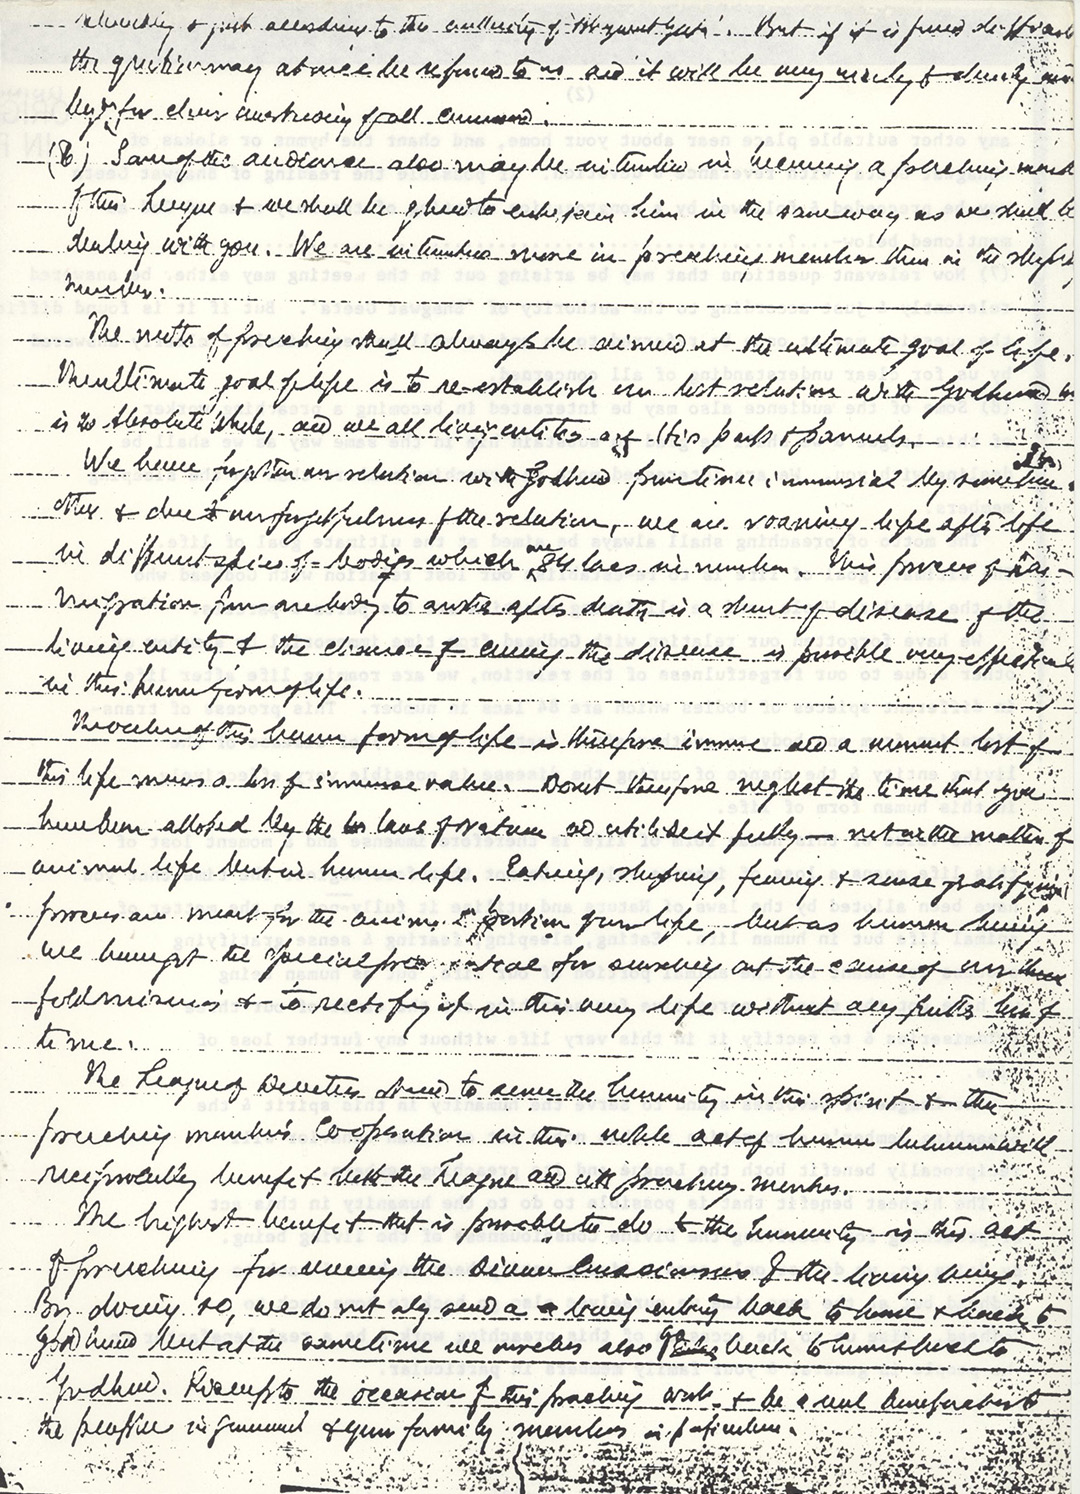 relevantly & just according to the authority of 'Bhagwat Geeta'. But if it is found difficult
the question may at once be referred to us and it will be very nicely & clearly answe
by us for clear understanding of all concerned.
(8) Some of the audience also may be interested in becoming a preaching member
of this League & we shall be glad to entertain him in the same way as we shall be
dealing with you. We are interested more in preaching member than in the sleeping
members.
The motto of preaching shall always be aimed at the ultimate goal of life.
The ultimate goal of life is to re-establish our lost relation with Godhead who
is the Absolute Whole, and we all living entities are His parts & parcels.
We have forgotten our relation with Godhead from time immemorial by some how or
other & due to our forgetfulness of the relation, we are roaming life after life
in different spices of bodies which are 84 lacs in number. This process of trans-
migration from one body to another after death is a sort of disease of the
living entity & the chance of curing the disease is possible very effectively
in this human form of life.
The value of this human form of life is therefore immense and a moment lost of
this life means a loss of immense value. Do not therefore neglect the time that you
have been alloted by the laws of Nature and utilise it fully — not in the matter of
animal life but in human life. Eating, sleeping, fearing & sense gratifying
process are meant for the animal portion of our life, but as human being
we have got the special for searching out the cause of our three
fold miseries & to rectify it in this very life without any further loss of
time.
The League of Devotees stand to serve the humanity in this spirit & the
preaching member's Cooperation in this noble act of human will
reciprocally benefit both the League and preaching member.
The highest benefit that is possible to do to the humanity is this act
of preaching for the Divine Consciousness of the living being.
By doing so, we do not only send a living entity back to home & back to
Godhead but at the sametime we ourselves also go back to home & back to
Godhead. Rise up to the occasion of this preaching work & be a real benefactor to
the people in general & your family members in particular.